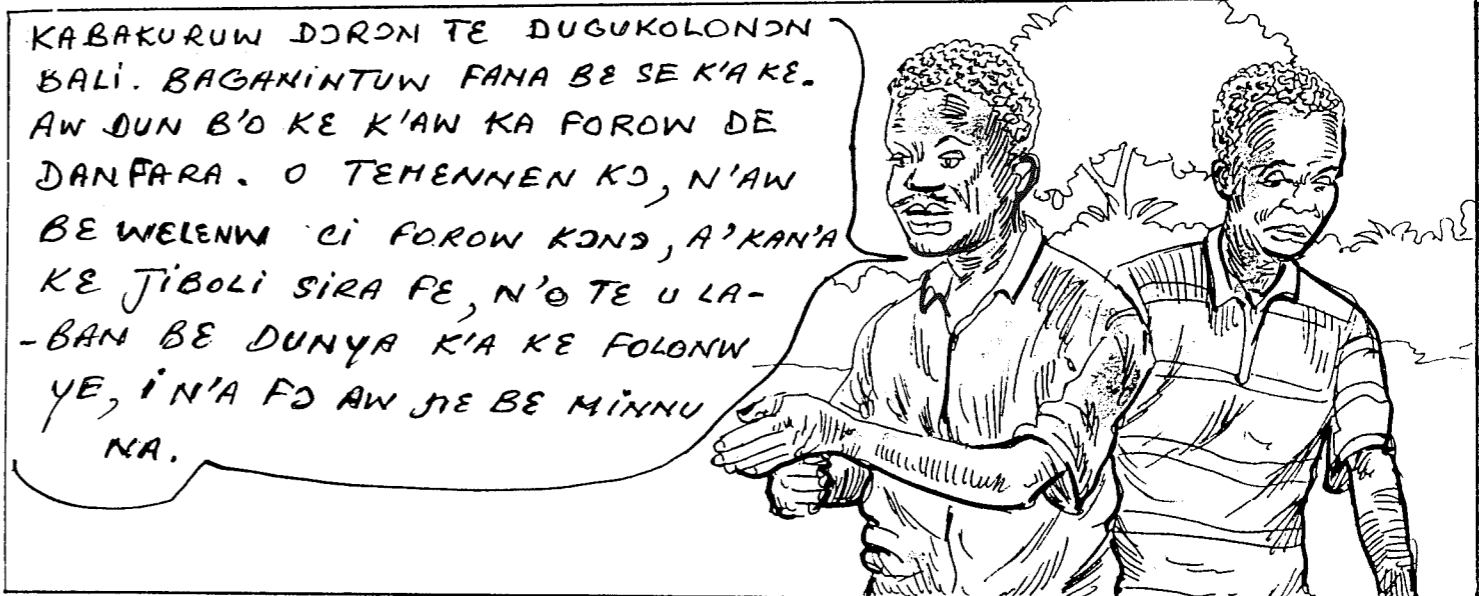 KABAKURUW DƆRƆN TƐ DUGUKOLONƆN
BALI. BAGANINTUW FANA BƐ SE K'A KƐ.
AW DUN B'O KƐ K'AW KA FOROW DE
DANFARA. O TƐMƐNNEN KƆ, N'AW
BƐ WƐLƐNW CI FOROW KƆNƆ, A' KAN'A
KƐ JIBOLI SIRA FƐ, N'O TƐ U LA-
-BAN BƐ DUNYA K'A KƐ FOLONW
YE, I N'A FƆ AW ɲƐ BƐ MINNU
NA.